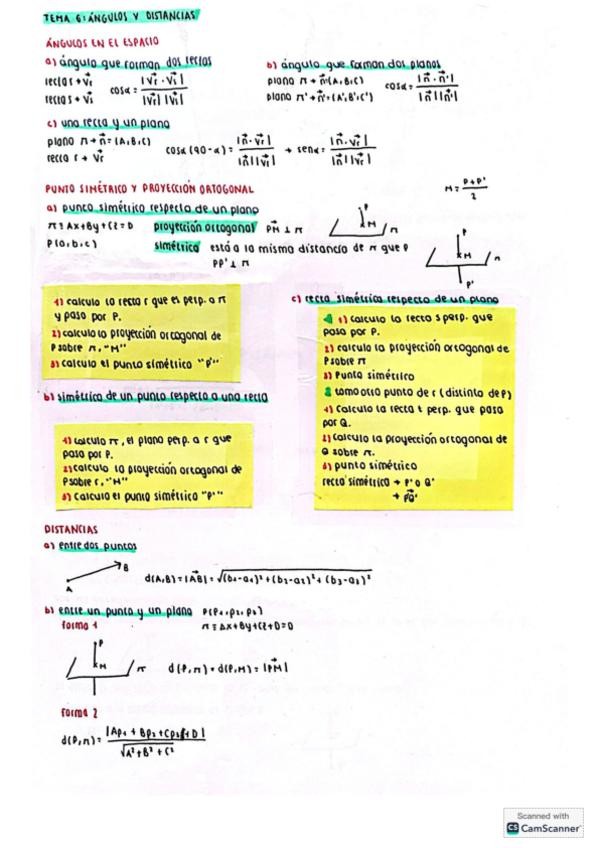 TEMA 6: ÁNGULOS Y DISTANCIAS
ÁNGULOS EN EL ESPACIO
a) ángulo que forman dos rectas
recta r → Vr
recta s → Vs
cosα = |Vr · Vs| / |Vr| |Vs|
b) ángulo que forman dos planos
plano π → n = (A, B, C)
plano π' → n' = (A', B', C')
cosα = |n · n'| / |n| |n'|
c) una recta y un plano
plano π → n = (A, B, C)
recta r → Vr
cosα (90 - α) = |n · Vr| / |n| |Vr| → senα = |n · Vr| / |n| |Vr|
PUNTO SIMÉTRICO Y PROYECCIÓN ORTOGONAL
M = P + P' / 2
a) punto simétrico respecto de un plano
π ≡ Ax + By + Cz = D
proyección ortogonal PM ⊥ π
P M π
P(a, b, c)
simétrico está a la misma distancia de π que P
PP' ⊥ π
P M π P'
1) calculo la recta r que es perp. a π
y pasa por P.
2) calculo la proyección ortogonal de
P sobre π, "M"
3) calculo el punto simétrico "P'"
b) simétrico de un punto respecto a una recta
1) calculo π, el plano perp. a r que
pasa por P.
2) calculo la proyección ortogonal de
P sobre r, "M"
3) calculo el punto simétrico "P'"
c) recta simétrica respecto de un plano
1 1) calculo la recta s perp. que
pasa por P.
2) calculo la proyección ortogonal de
P sobre π
3) Punto simétrico
2 tomo otro punto de r (distinto de P)
1) calculo la recta t perp. que pasa
por Q.
2) calculo la proyección ortogonal de
Q sobre π.
3) punto simétrico
recta simétrica → P' o Q'
→ P'Q'
DISTANCIAS
a) entre dos puntos
A B
d(A, B) = |AB| = √(b1 - a1)² + (b2 - a2)² + (b3 - a3)²
b) entre un punto y un plano P(P1, P2, P3)
forma 1
π ≡ Ax + By + Cz + D = 0
P M π
d(P, π) = d(P, M) = |PM|
forma 2
d(P, π) = |Ap1 + Bp2 + Cp3 + D| / √A² + B² + C²
Scanned with
CS CamScanner